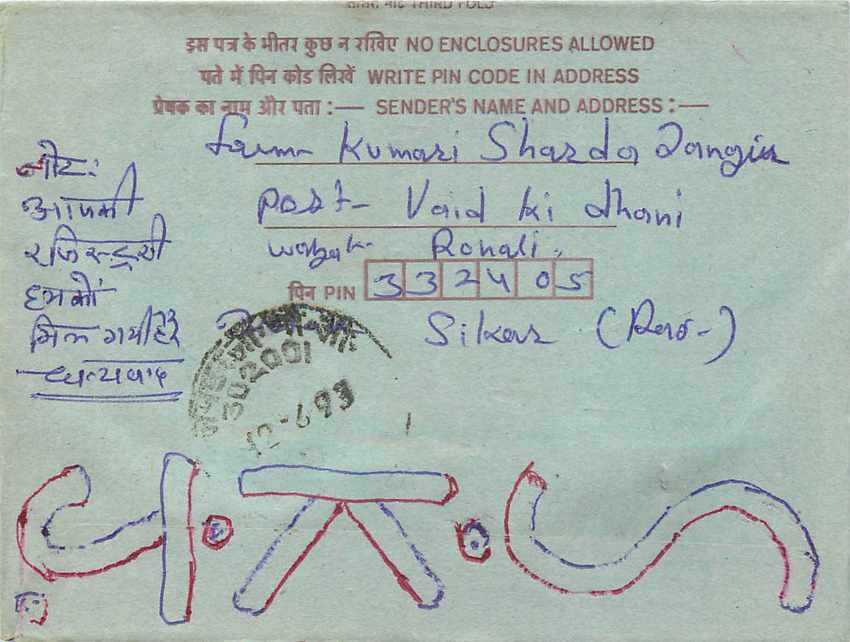 THIRD FOLD
इस पत्र के भीतर कुछ न रखिए NO ENCLOSURES ALLOWED
पते में पिन कोड लिखें WRITE PIN CODE IN ADDRESS
प्रेषक का नाम और पता :— SENDER'S NAME AND ADDRESS :—
Kumari Sharda Jangir
post- Vaid ki dhani
Ranoli,
पिन PIN 332405
Sikar (Raj-)
नोट:
आपकी
रजिस्ट्री
हमको
मिल गयी है
धन्यवाद
302001
12-6-93